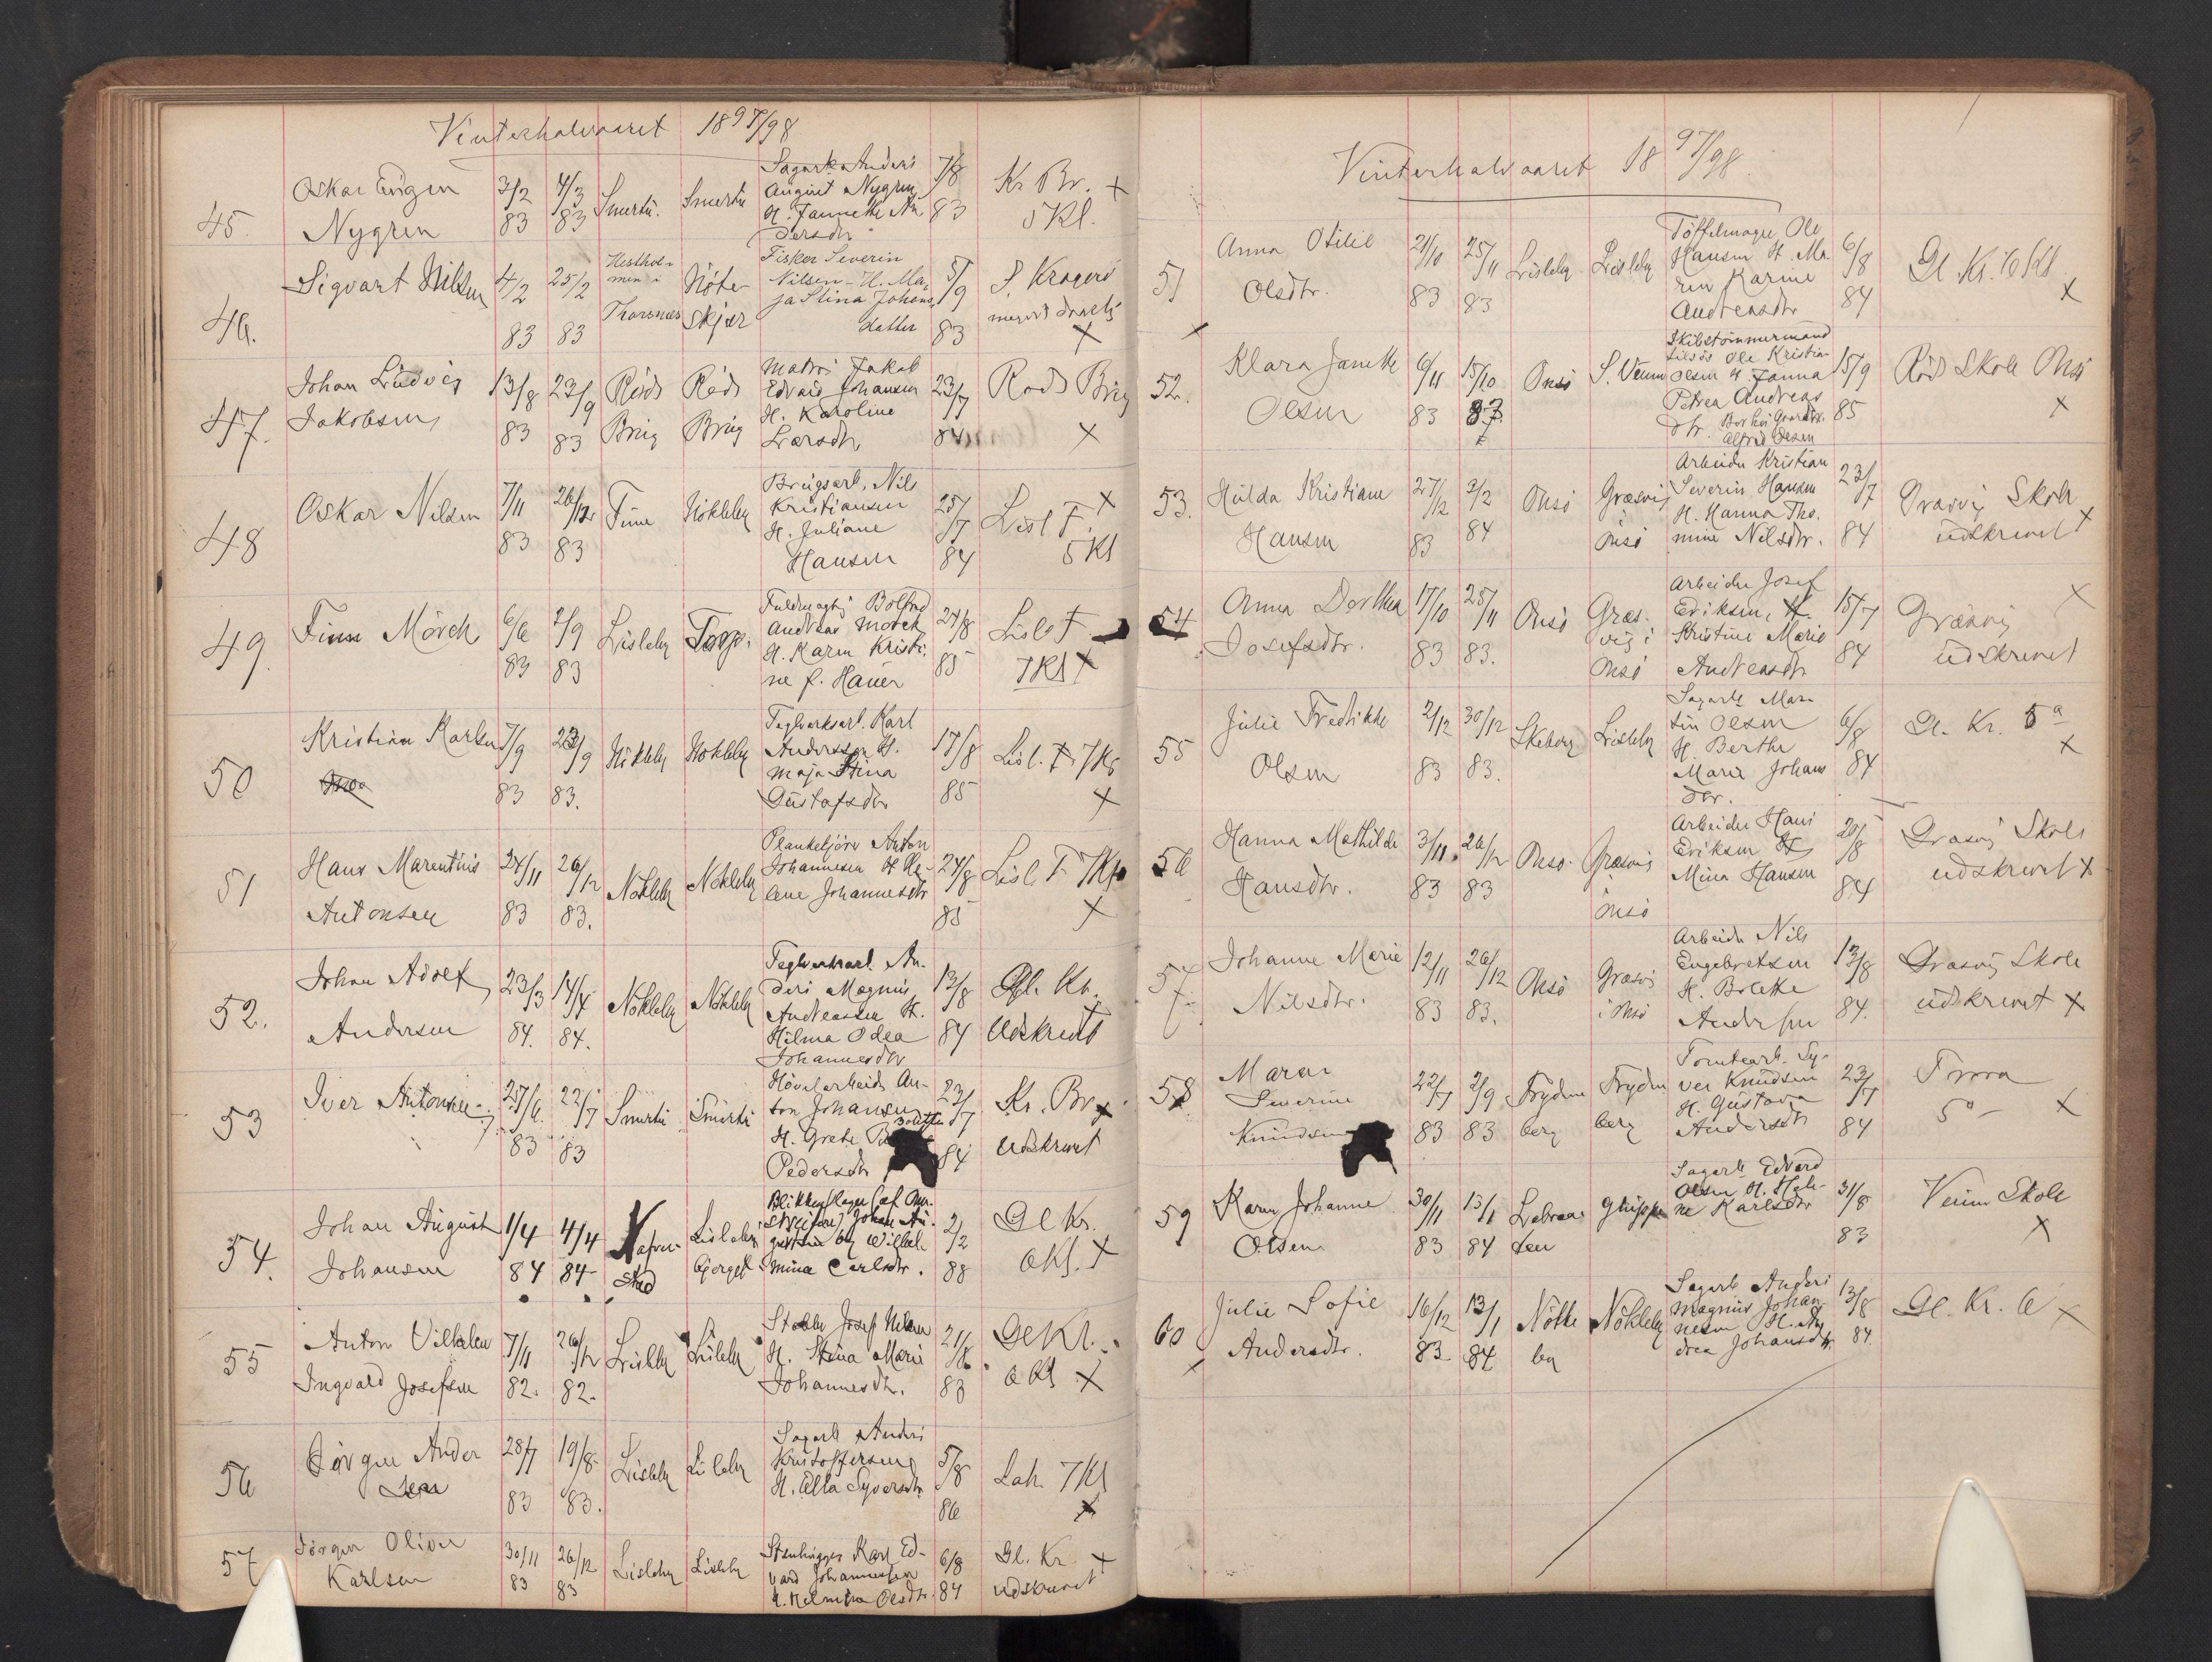 Vinterhalvaaret 1897/98
45. Oskar Eugen Nygren 3/2 83 4/3 83 Smertu. Smertu
Sagarb Anders
August Nygren
H. Jannette An
dersdtr
7/8 83 Kr Br. x 5 Kl.
46. Sigvart Nilsen 4/2 83 25/2 83
Hesthol-
men i
Thorsnæs
Nöte-
skjær
Fisker Severin
Nilsen - H. Ma,
ja Stina Johans
datter
5/9 83 S. Kragerö x
47. Johan Ludvig Jakobsen 13/8 83 23/9 83 Röds Brug Röds Brug
Matros Jakob
Edvard Johansen
H. Karoline
Larsdtr
23/7 84 Röds Brug x
48 Oskar Nilsen 7/11 83 26/12 83 Nökleby
Brugsarb. Nils
Kristiansen
H. Juliane
Hansen
25/7 84 Lisl F. x 5 Kl
49. Finn Mörch 6/6 83 2/9 83 Lisleby Torp.
Fuldmægtig
Andreas Mörch
H. Karen Kristi.
ne f. Hauer
24/8 85 Lisl F 7 Kl x
50 Kristian Karlsen 7/9 83 23/9 83. Nökleby Nökleby
Teglverksarb. Karl
Andersson H.
Maja Stina
Gustafsdtr
17/8 85 Lisl. F 7 Kl x
51 Hans Marentius Antonsen 24/11 83 26/12 83. Nökleby Nökleby
Plankekjörer Anton
Johannesen H He-
lene Johannesdtr
24/8 85 Lisl. F 7 Kl x
52. Johan Adolf Andersen 23/3 84. 14/4 84. Nökleby Nökleby
Teglverksarb. An-
ders Magnus
Andreassen H.
Hilma Odea
Johannesdtr
13/8 84 Gl. Kr. Udskrevet
53 Iver Antonsen 27/6 83 22/7 83 Smertu Smertu
Hövelarbeid. An-
ton Johansen
H. Grete
Pedersdtr
23/7 84 Kr. Br x Udskrevet
54. Johan August Johansen 1/4 84 4/4 84 Lisleby
Johan Au-
gustsen og Wilhel-
mina Carlsdtr.
2/2 88 Gl Kr. 6 Kl. x
55 Anton Vilhelm Ingvald Josefsen 7/11 82. 26/12 82. Lisleby Lisleby
Josef Nilsen
H. Stina Marie
Johannesdtr.
21/8 83 Gl Kr. 6 Kl x
56 Jörgen Andersen 28/7 83 19/8 83. Lisleby Lisleby
Sagarb Anders
Kristoffersen
H. Olla Syversdtr
5/8 86 Lah. 7 Kl x
57 Jörgen Oliver Karlsen 30/11 83 26/12 83 Lisleby Lisleby
Stenhugger Karl Ed-
vard Johannesen
H. Helmina Olsdtr.
6/8 84 Gl. Kr. x udskrevet
Vinterhalvaaret 1897/98
51 Anna Otilie Olsdtr. 21/10 83 25/11 83 Lisleby Lisleby
Töffelmager Ole
Hansen H. Ma-
ren Karine
Andreasdtr
6/8 84 Gl. Kr. 6 Kl x
52. x Klara Janette Olsen 6/11 83 15/10 83 Onsö S. Veum
Skibstömmermand
Ole Kristian
Olsen H Janna
Petrea Andreas
dtr.
Alfred Olsen
15/9 85 Röd Skole Onsö x
53. Hulda Kristiane Hansen 27/12 83 3/2 84 Onsö Græsvig i Onsö
Arbeider Kristian
Severin Hansen
H. Hanna Tho.
mine Nilsdtr.
23/7 84 Græsvig Skole udskrevet x
54 Anna Dorthea Josefsdtr. 17/10 83 25/11 83. Onsö
Græs-
vig i
Onsö
Arbeider Josef
Eriksen, H.
Kristine Marie
Andreasdtr
15/7 84 Græsvig udskrevet x
55 Julie Fredrikke Olsen 2/12 83 30/12 83. Skeberg Lisleby
Sagarb Mar-
tin Olsen
H. Berthe
Marie Johans
dtr.
6/8 84 Gl. Kr. 5 a x
56 Hanna Mathilde Hansdtr. 3/11 83 26/12 83 Onsö. Græsvig i Onsö
Arbeider Hans
Eriksen H
Mina Hansen
20/8 84 Græsvig Skole udskrevet x
57. Johanne Marie Nilsdtr. 12/11 83 26/12 83. Onsö Græsvig i Onsö
Arbeider Nils
Engebretsen
H. Bolette
Andersen
13/8 84. Græsvig Skole udskrevet x
58 Maren Severine Knudsen 22/7 83 2/9 83
Frydenberg Frydenberg
Tomtearb. Sy-
ver Knudsen
H. Gustava
Andersdtr
23/7 84 Trara 5 a x
59 Karen Johanne Olsen 30/11 83 13/1 84 Glupe
Sagarb Edvard
Olsen H. Hele-
ne Karlsdtr
31/8 83 Veum Skole x
60 x Julie Sofie Andersdtr. 16/12 83 13/1 84 Nökleby Nökleby
Sagarb Anders
Magnus Johan-
nesen H. An
drea Johansdtr.
13/8 84. Gl. Kr. 6 x